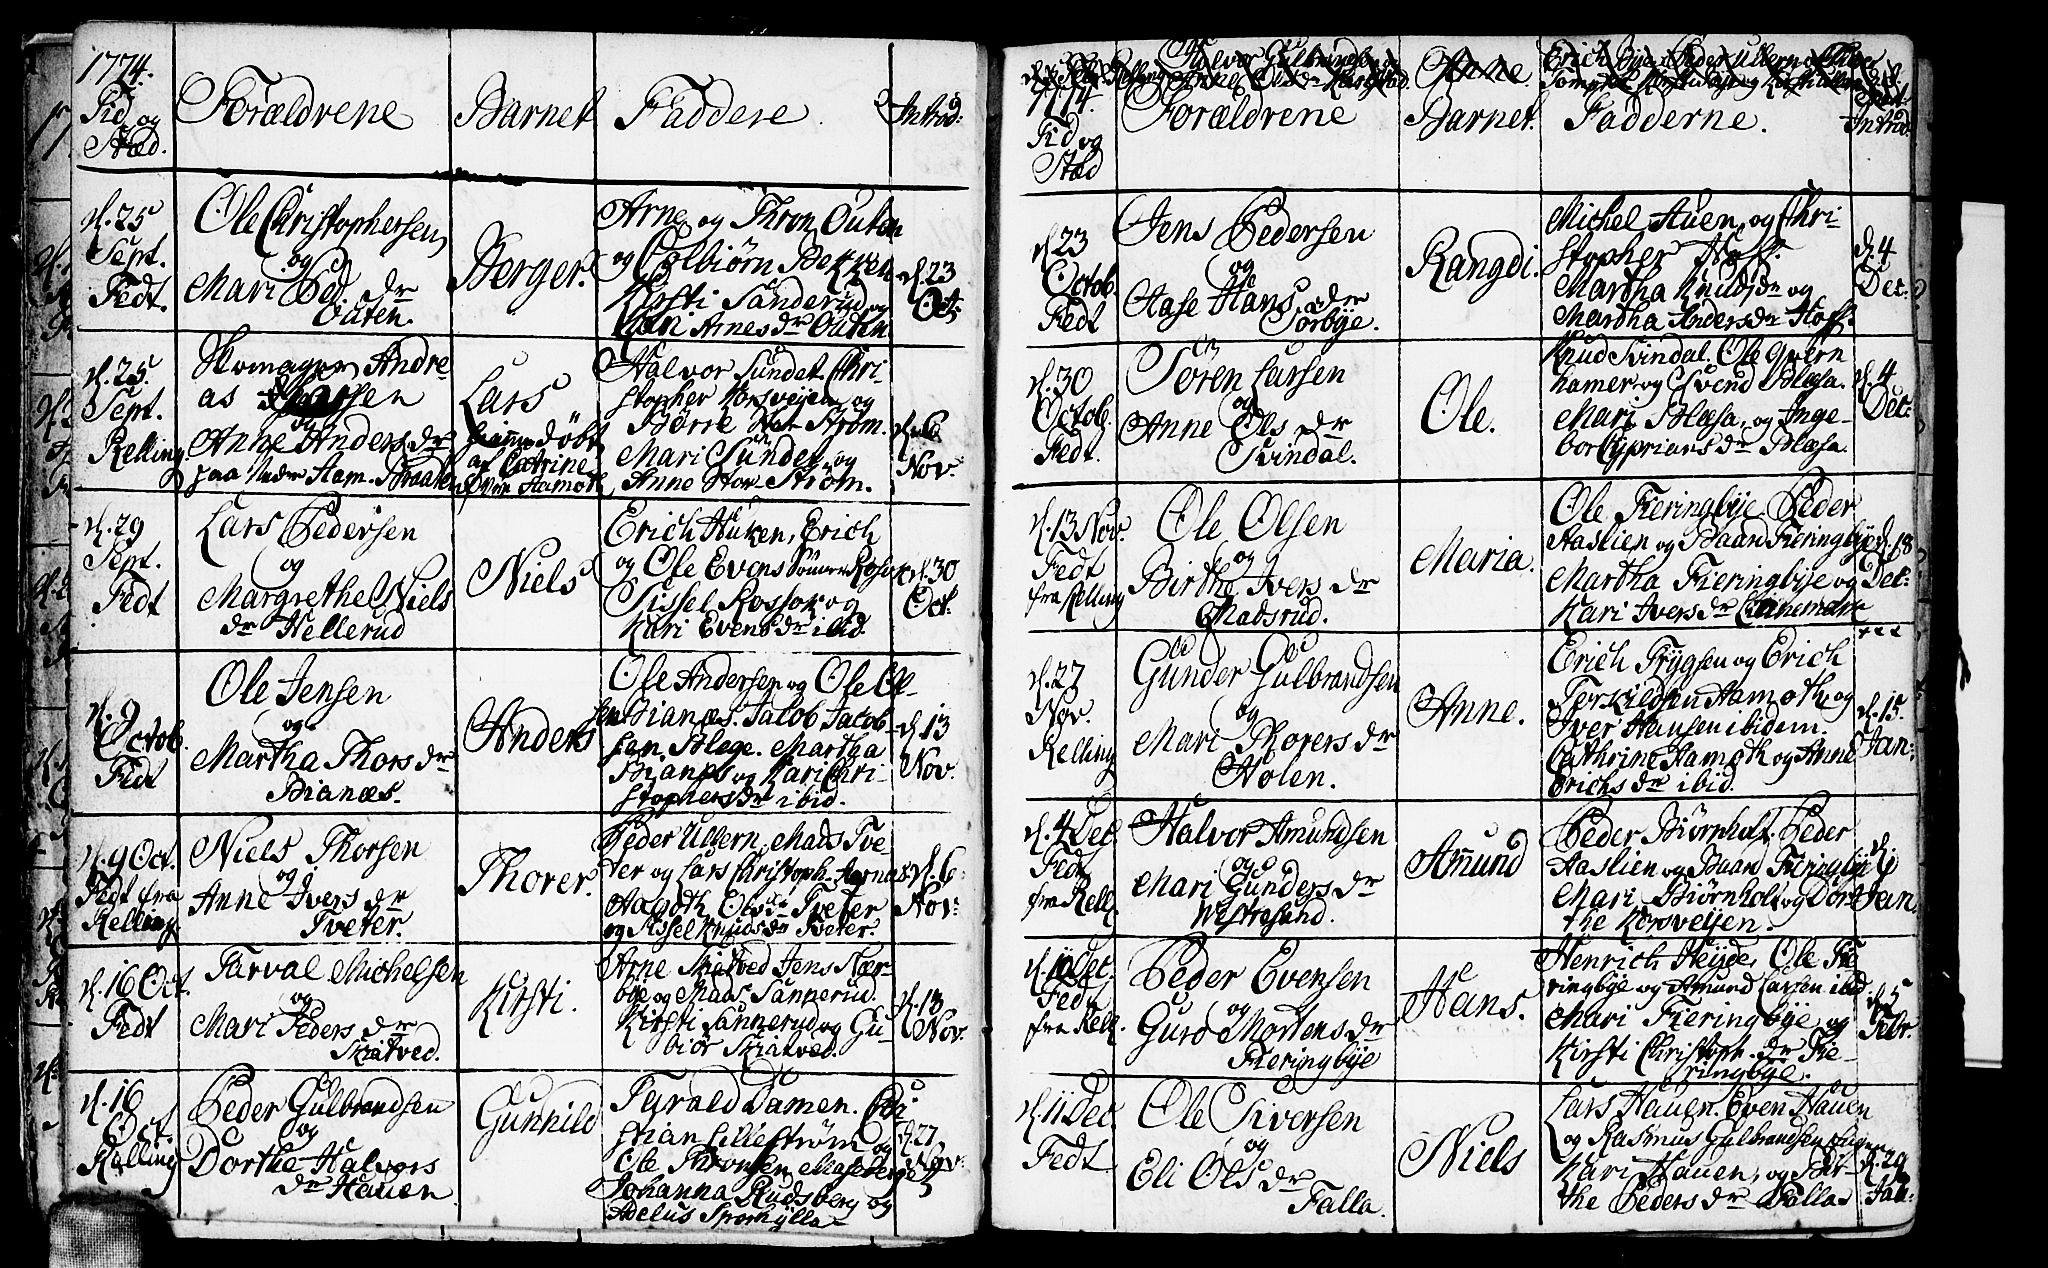 1774.
Tid og
Stæd.
Forældrene
Barnet
Faddere.
Introd:
d. 25
Sept.
Fedt.
Ole Christophersen,
og
Mari Ped. dr
Outen.
Berger.
Arne og Thron Outen
og Colbiørn Bekken
Kirsti Sanderud og
Kari Arnes dr Outen
d. 23
Oct.
d. 25.
Sept.
Relling
Skomager Andre-
as
og
Anne Anders dr
paa Nedr Ham. Braaten
Lars
hiemmedöbt
af Catrine
Hamoth
Halvor Sundet. Chri-
stopher Korsveien og
Börre Nor Ström.
Mari Sundet og
Anne Stor Ström.
d. 6
Nov.
d. 29
Sept.
Fedt
Lars Pedersen
og
Margrethe Niels
dr Hellerud
Niels
Erich Huken, Erich
og Ole Evens
Sissel Rossok og
Kari Evens dr ibid.
d. 30
Oct.
d. 9
Octob.
Fedt
Ole Jensen
og
Martha Thors dr
Bianæs.
Anders
Ole Andersen og Ole Ol-
sen Bianæs. Jacob Jacob-
sen Blege. Martha
Bianæs og Kari Chri-
stophers dr ibid.
d. 13
Nov.
d. 9 Oct.
Fedt fra
Relling
Niels Thorsen
og
Anne Ivers dr
Tveter.
Thorer.
Peder Ullern, Mads Tve-
ter og Lars Christoph. Aarnæs
Aagoth Ols dr Tveter
og Sissel Knuds dr Tveter.
d. 6
Nov.
d. 16 Oct.
Fedt
Tarval Michelsen
og
Mari Peders dr
Skiatved.
Kirsti.
Arne Skiatved Jens Nær-
bye og Mads Sannerud.
Kirsti Sannerud og Gu-
biör Skiatved.
d. 13
Nov.
d. 16
Oct.
Relling
Peder Gulbrandsen
og
Dorthe Halvors
dr Hauen
Gunhild
Tyrald Damen. Cri-
stian Lilleström og
Ole Thronsen
Johanna Rudsberg og
Adelus
d. 27
Nov.
Halvor Gulbrandsen
Relling Anne Ols dr
Anne.
Erich Bye, Peder Ullern
1774.
Tid og
Stæd
Forældrene
Barnet.
Fadderne.
Introd.
d. 23
Octob.
Fedt
Jens Pedersen
og
Aase Hans dr
Sörbye.
Rangdi.
Michel Auen, og Chri-
stopher Hoff.
Martha Knuds dr og
Martha Anders dr Hoff.
d. 4
Dec:
d. 30
Octob.
Fedt.
Sören Larsen
og
Anne Ols dr
Svindal.
Ole.
Knud Svindal. Ole Qvern
hamer og Svend Blæsa.
Mari Blæsa, og Inge-
bor Cyprians dr Blæsa.
d. 4
Dec:
d. 13 Nov.
Fedt
fra Relling
Ole Olsen
og
Birthe Ivers dr
Madsrud.
Maria.
Ole Fieringbye Peder
Aaslien og Baard Fieringbye
Martha Fieringbye og
Kari Ivers dr
d. 18
Dec:
d. 27
Nov.
Relling
Gunder Gulbrandsen
og
Mari Thorers dr
Holen.
Anne.
Erich Trygsen og Erich
Torskildsen Hamoth og
Iver Hansen ibidem.
Cathrine Hamoth og Anne
Erichs dr ibid.
d. 15.
Jan:
d. 4 Dec.
Fedt
fra Rell.
Halvor Amundsen
og
Mari Gunders dr
Amund
Peder Biörnholt. Peder
Aaslien og Baard Fieringbye
Mari Biörnholt og Dort
the Korsveien.
d. 1
Jan.
d. 10 Dec.
Fedt
fra Rell.
Peder Evensen
og
Guro Mortens dr
Fieringbye
Hans.
Henrich Heyde, Ole Fie
ringbye og Amund Larsen ibid
Mari Fieringbye og
Kirsti Christoph. dr Fie-
ringbye.
d. 5
Febr.
d. 11 Dec.
Fedt
Ole Siversen
og
Eli Ols dr
Falla.
Niels
Lars Hauen. Even Hauen
og Rasmus Gulbrandsen
Kari Hauen, og Bir-
the Peders dr Falla
d. 29
Jan: